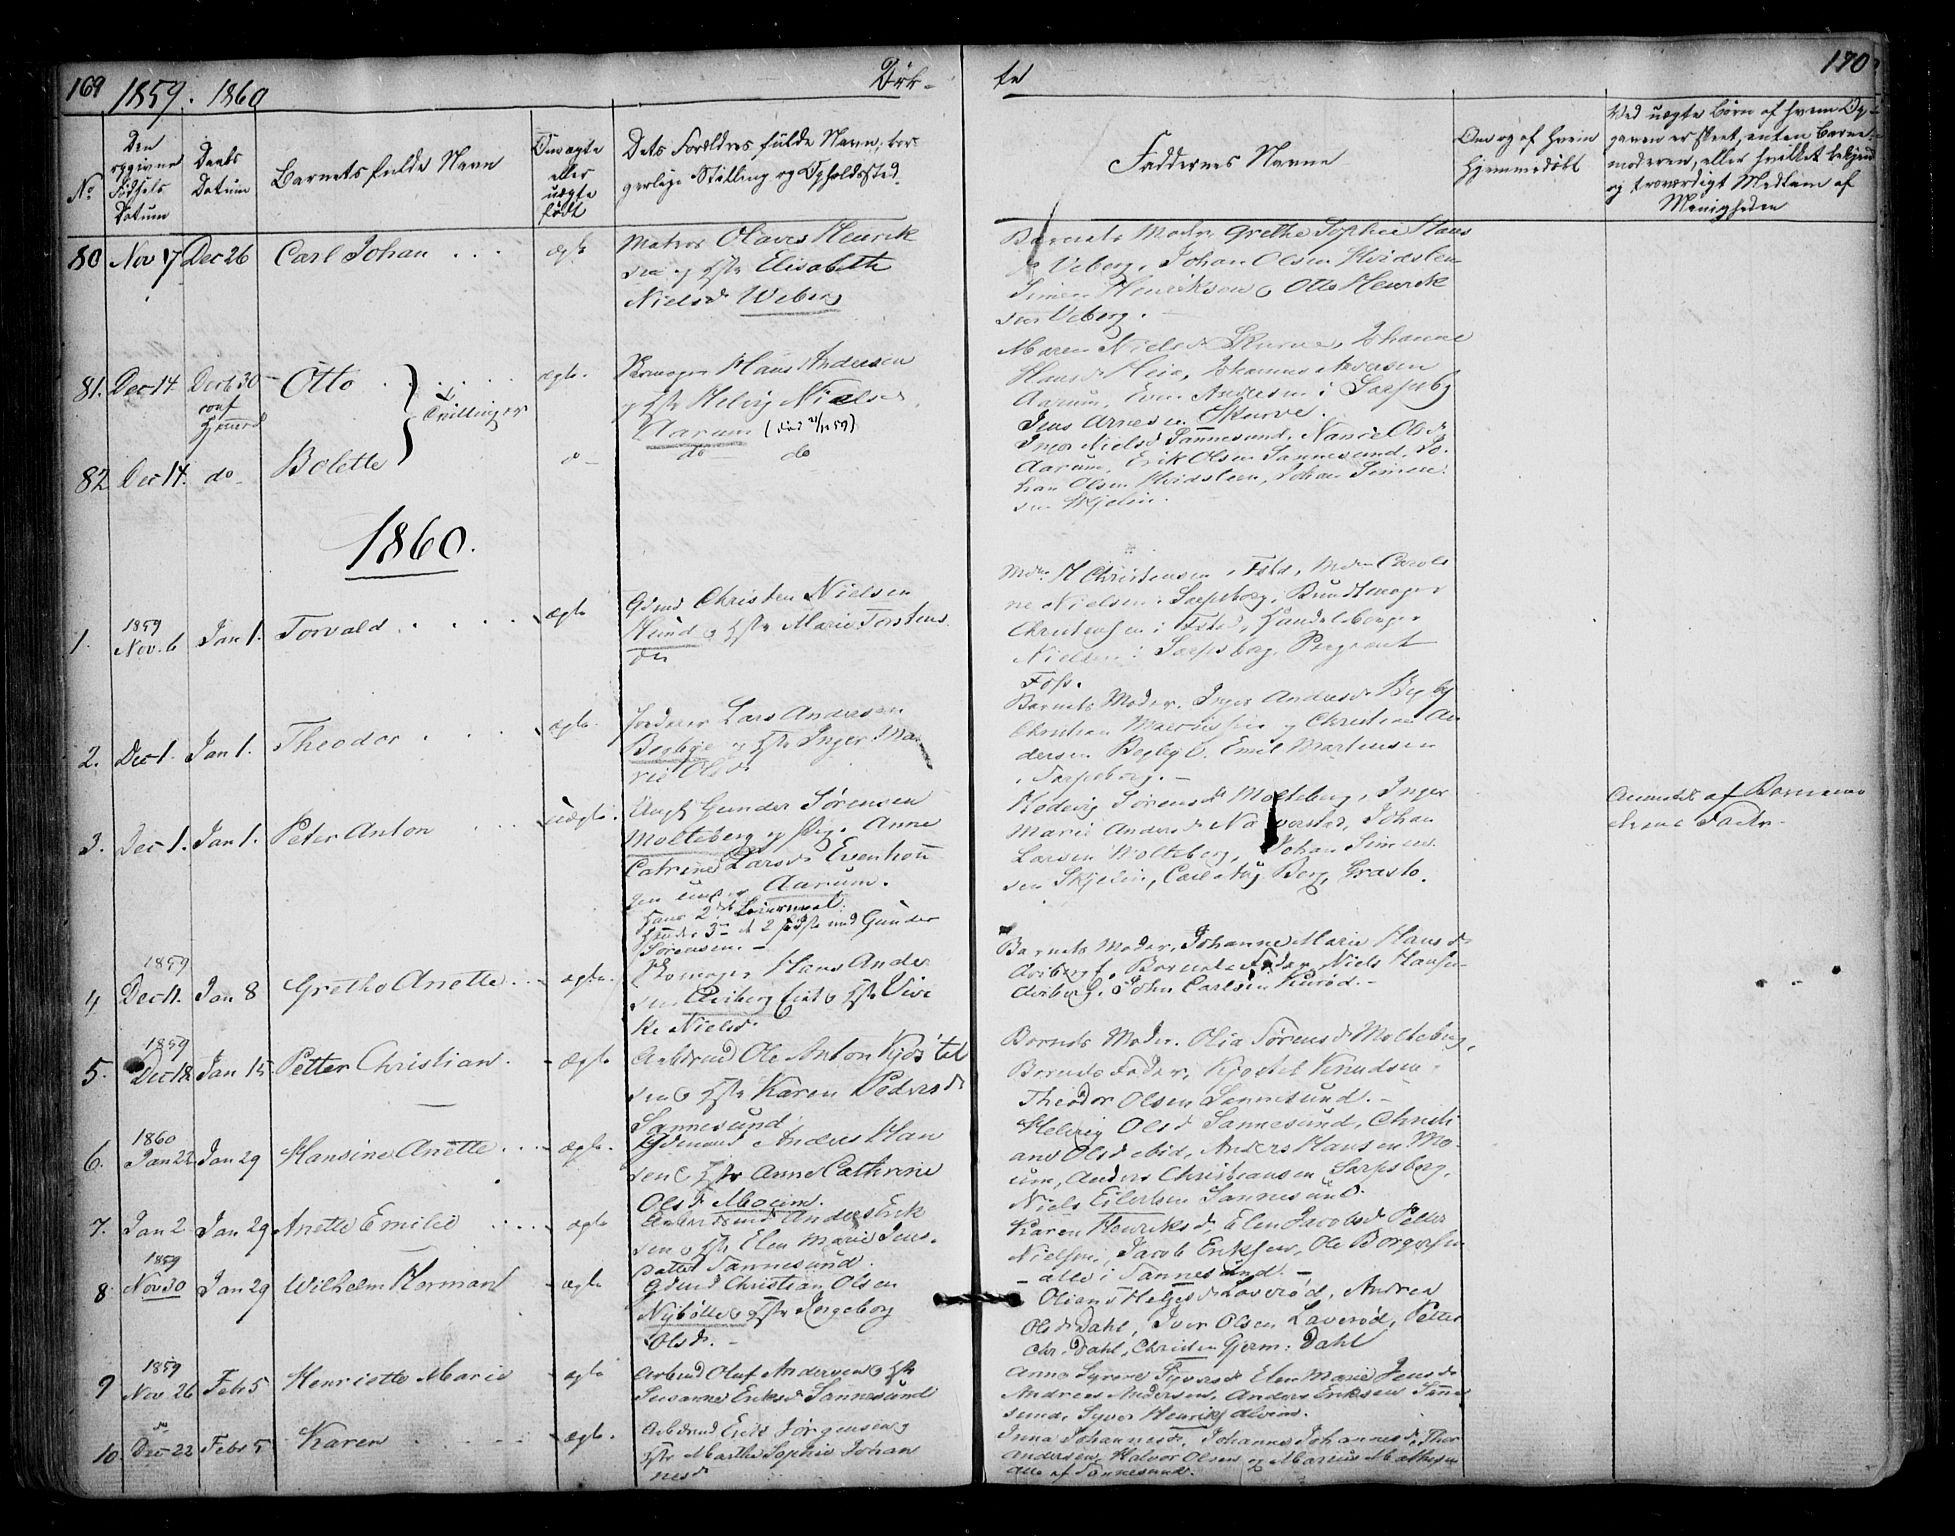 169
1859. 1860
Døb-
te
170
No
Den opgivne Fødsels Datum
Daabs Datum
Barnets fulde Navn
Om ægte eller uægte født
Dets Forældres fulde Navn, borgerlige Stilling og Opholdssted.
Faddernes Navne
Om og af hvem hjemmedøbt
Ved uægte Børn af hvem Opgaven er skeet, enten Barnemoderen, eller hvilket bekjend og troværdigt Medlem af Menigheden
80 Nov 17 Dec 26 Carl Johan . . . ægte
Matros Olaves Henrik
sen og Hstr Elisabeth
Nielsd. Weberg
Barnets Moder, Grethe Sophie Hans
d. Veberg, Johan Olsen Hvidsten
Simen Henriksen, Otto Henrik
sen Veberg.
81. Dec 14 Decb 30 Otto . . . Tvillinger ægte.
conf
Hjemmed
Hans Andersen
og Hstr Helvig Nielsd.
Aarum (død 21/12 59)
Maren Nielsd. Skurve, Johanne
Hansd. Heie, Johannes Andersen
Aarum, Even Andersen i Sarpsbg
Jens Arnesen Skurve.
82 Dec 14. do Bolette do
do do
Inger Nielsd. Sannesund, Olsd.
Aarum, Erik Olsen Sannesund, Jo-
han Olsen Hvidsteen, Johan Simen
sen Skjelin.
1860.
1. 1859 Nov. 6 Jan 1. Torvald . . . . . ægte
Gdmd Christen Nielsen
Hund og Hstr Marie Torstens
dtr
Mdm H Christensen i Fstd, Mdm Caroli
ne Nielsen i Sarpsborg, Bundtmager
Christensen i Fstd, Handelsborger
Nielsen i Sarpsborg, Pergrent
Foss.
2. Dec 1. Jan 1. Theodor . . . . ægte.
Lars Andersen
Begbye og Hstr Inger Ma-
rie Olsd.
Barnets Moder, Inger Andersd. Begby
Christian og Christian An
dersen Begby, Emil Martinsen
i Sarpsborg. -
3. Dec 1. Jan 1. Peter Anton . . . uægte.
Ungk Gunder Sørensen
Molteberg og Pig. Anne
Catrine Larsd. Evenhou
gen under Aarum.
Hans 2det Leiermaal.
Hendes 3die de 2 første med Gunder
Sørensen. -
Hedevig Sørensd. Molteberg, Inger
Marie Andersd. Navestad, Johan
Larsen Molteberg, Johan Simen
sen Skjelin, Carl Aug. Berg, Grasto.
Anmeldt af Barnemo
derens Fader.
4 1859 Dec 11. Jan 8 Grethe Anette . . . ægte.
Hans Ander
sen og Hstr Vive
ke Nielsd.
Barnets Moder, Johanne Marie Hansd.
Barnets Fader, Niels Hansen
John Carlsen Kurød. -
5. 1859 Dec 18 Jan 15 Petter Christian. - ægte
Arbdmd Ole Anton Kjøstel
sen og Hstr Karen Pedersd.
Sannesund
Barnets Moder. Olia Sørensd. Molteberg,
Barnets Fader, Kjøstel Knudsen,
Theodor Olsen Sannesund. -
6. 1860 Jan 22 Jan 29 Hansine Anette . . . ægte.
Anders Han
sen og Hstr Anne Cathrine
Olsd. Moum.
Helvig Olsd. Sannesund, Christi
ane Olsd ibid, Anders Hansen Mo-
um, Anders Christiansen Sarpsborg,
Niels Eilertsen Sannesund.
7. Jan 2 Jan 29 Anette Emilie . . . . ægte
Arbeidsmd Anders Erik
sen og Hstr Elen Marie Jens-
datter Sannesund.
Karen Henriksd., Elen Jacobsd. Petter
Nielsen, Jacob Eriksen, Ole Borgersen
- alle i Sannesund. -
8. 1859 Nov 30 Jan 29 Wilhelm Herman - ægte
Gdmd Christian Olsen
Nybølle og Hstr Ingeborg
Olsd. -
Oliane Helgesd. Laverød, Andrea
Olsd. Dahl, Iver Olsen Laverød, Petter
Chr. Dahl, Christen Gjerm: Dahl
9 1859 Nov. 26 Feb 5 Henriette Marie - ægte
Arbmd Oluf Andersen og Hstr
Susanne Eriksd. Sannesund
Anne Syversd. Elen Marie Jensd.
Andreas Andersen, Anders Eriksen Sanne
sund, Syver Henriks. Alvim.
10. do Dec 22 Feb 5 Karen . . . ægte.
Arbdmd Erik Jørgensen og
Hstr Marthe Sophie Johan
nesd.
Inna Johannesd., Johanne Johannesd., Thor
Andersen, Halvor Olsen og Marius Mathisen
alle af Sannesund.